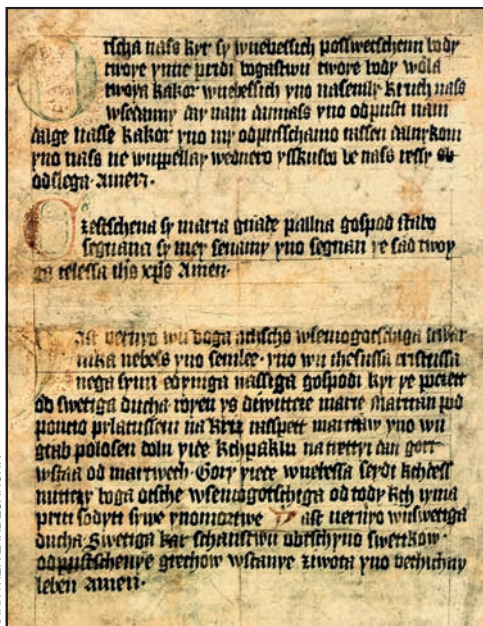 Otscha nass kyr sy wnebessich posswetschenu body
twoye yme pridi bogastwu twoye body wola
twoya kakor wnebessich yno nasemly kruch nass
wsedanny day nam dannass yno odpusti nam
dalge nasse kakor yno my odpusschamo nassen dalnykom
yno nass ne wuppellay wednero ysskusbo le nass ressy od
odslega Amen.
Czestschena sy maria gnade pallna gospod stabo
segnana sy mey senamy yno segnan ye sad twoy
ga telessa ihs xps Amen.
Jast veruyo wu boga otscho wsemogotschiga stwar
nika nebess yno semlee. yno wu ihesussa cristussa
nega synu edyniga nassiga gospodi kyr ye poczett
od swetiga ducha royen ys diwittcze marie Martran pod
poncio pylatussem na kriz raspett martraw yno wu
grab polosen dolu yide kchpaklu na trettyi dan gori
wstaa od martwech. Gory yide wnebessa sedi kchdess
nuttzy boga otsche wsemogotschyga od tody kch yma
priti sodyti sywe yno mortwe Jast veruyo wuswetiga
ducha Swetiga kar schanstwu obtschyno swettkow.
odpustschenye grechow wstanye ziwota yno vechichny
leben amen.